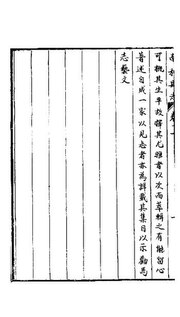 可概其生平故擇其尤雅者以次而萃輯之有能留心
著述自成一家以見志者亦為詳載其集目以示勸為
志藝文